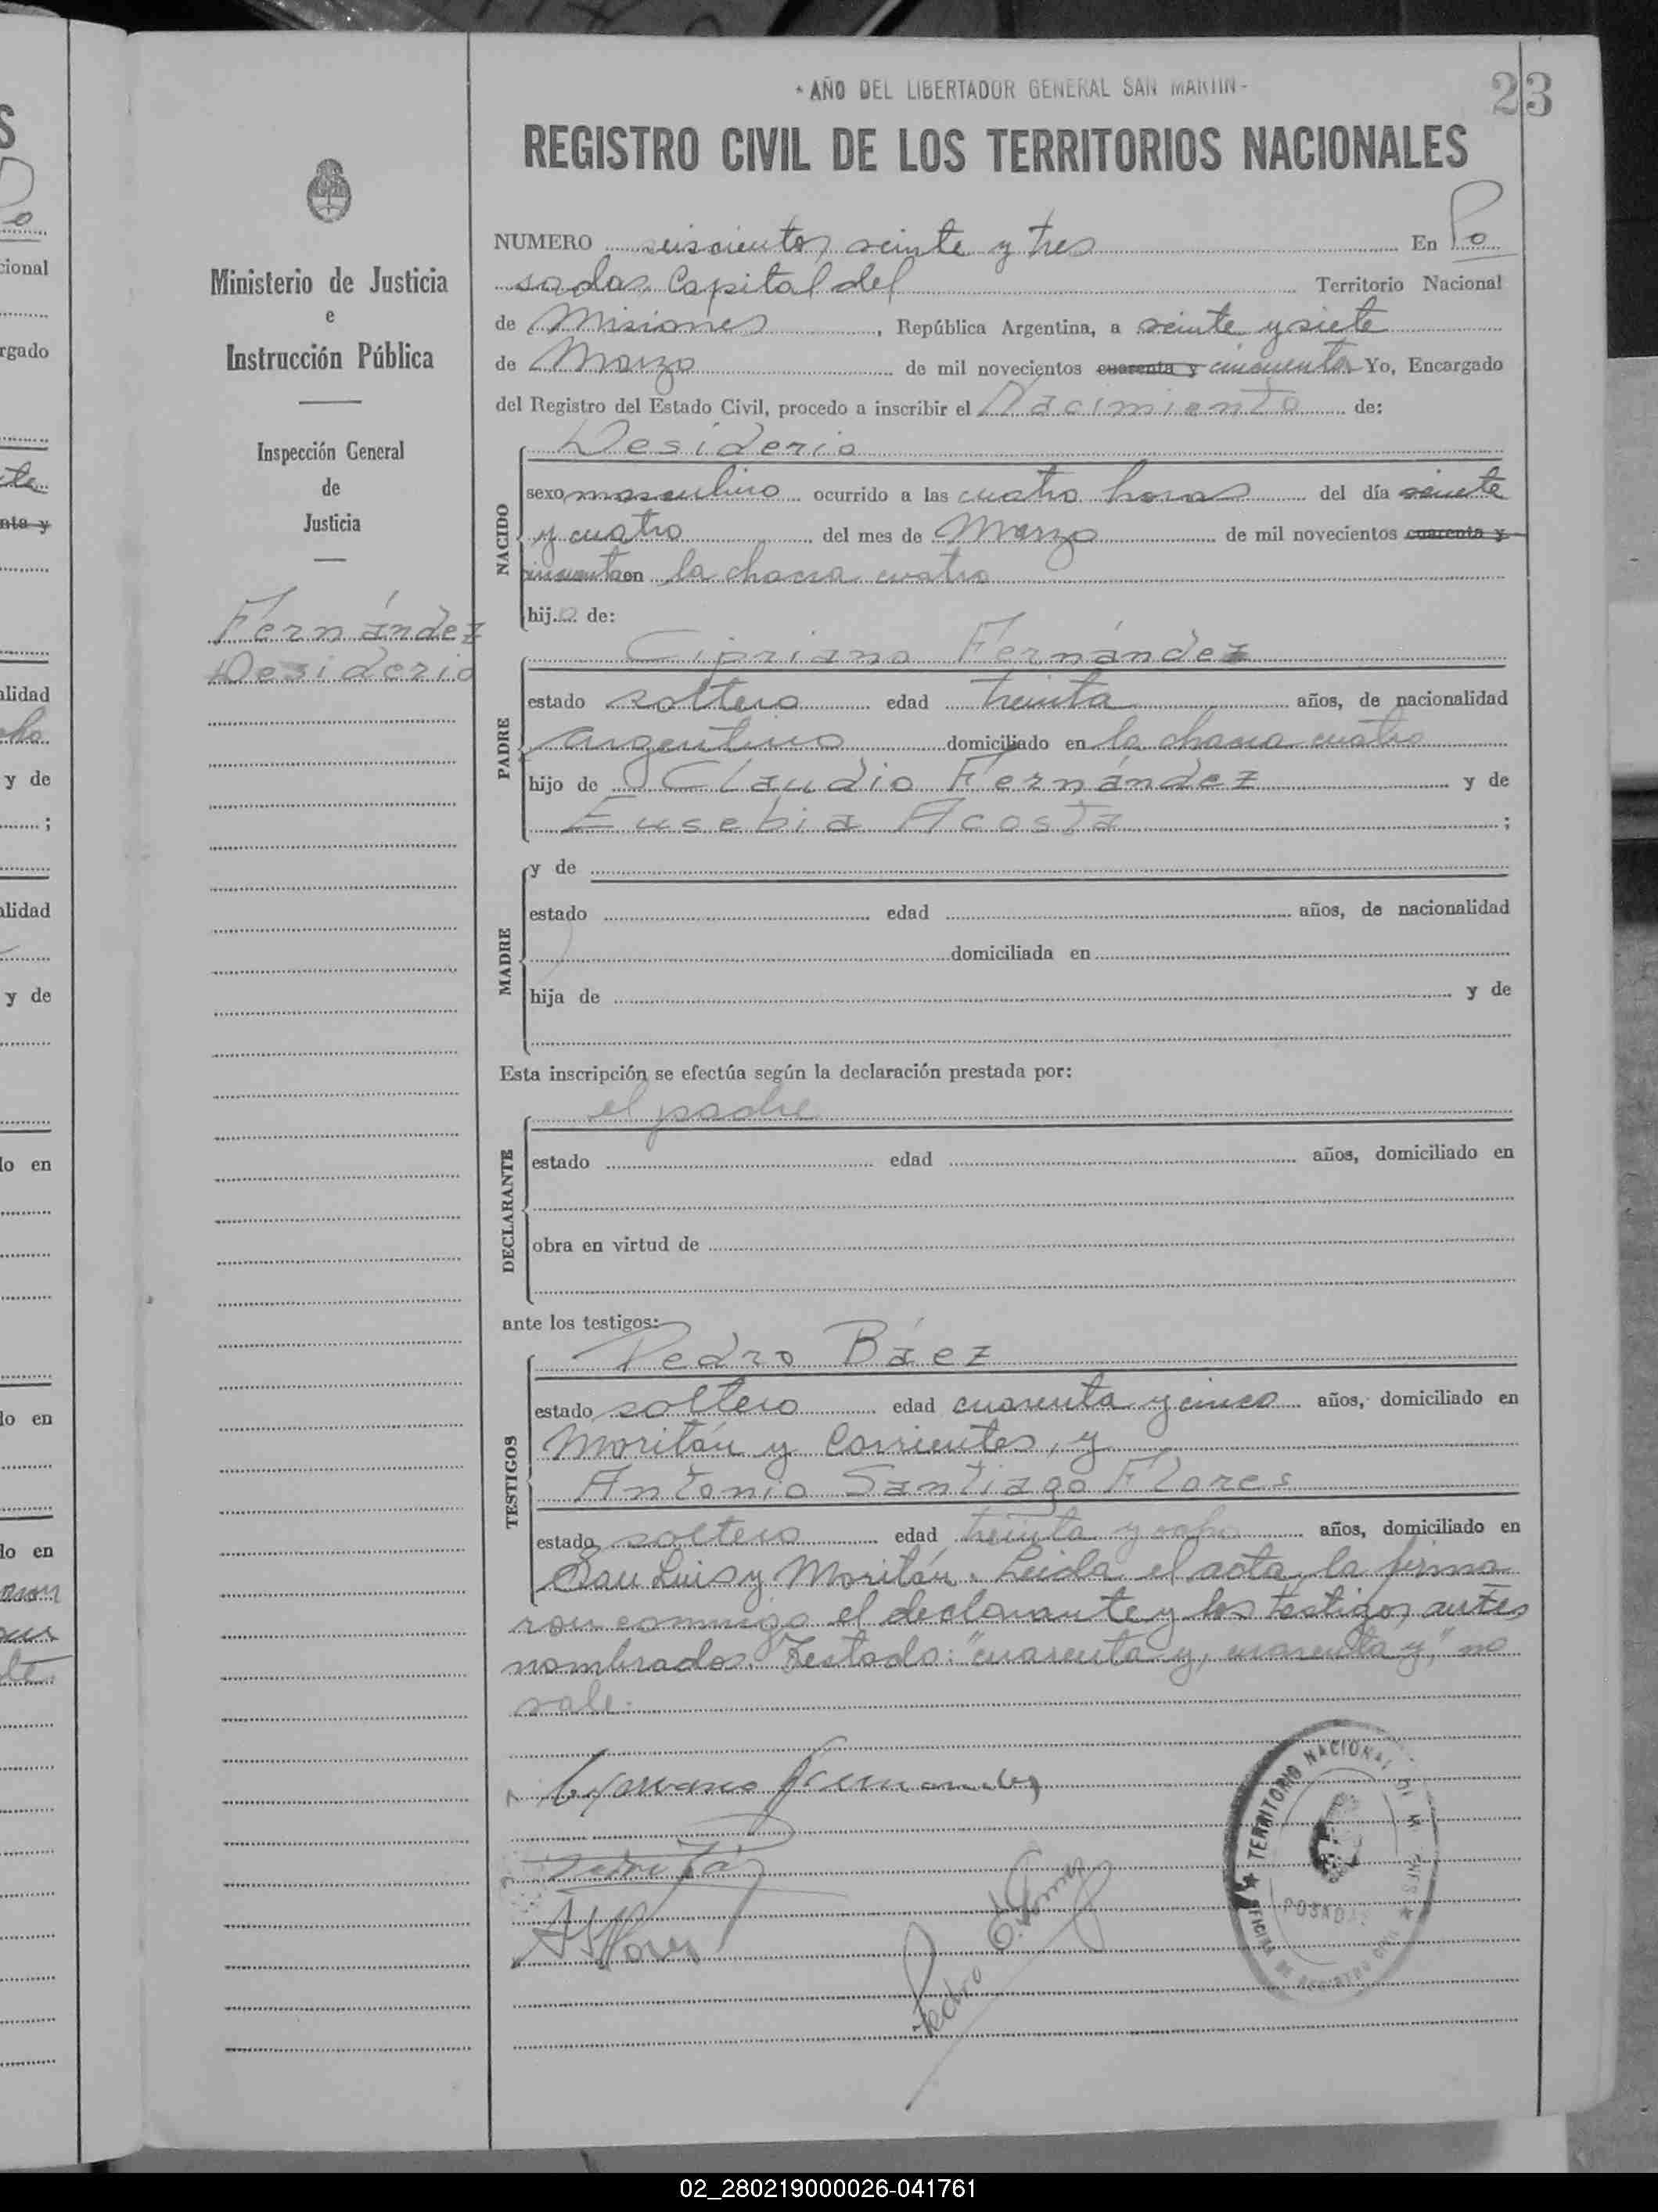 * AÑO DEL LIBERTADOR GENERAL SAN MARTIN -
23
REGISTRO CIVIL DE LOS TERRITORIOS NACIONALES
Ministerio de Justicia
e
Instrucción Pública
Inspección General
de
Justicia
Fernández
Desiderio
NUMERO seiscientos veinte y tres En Po
sadas Capital del Territorio Nacional
de Misiones, República Argentina, a veinte y siete
de Marzo de mil novecientos cuarenta y cincuenta Yo, Encargado
del Registro del Estado Civil, procedo a inscribir el Nacimiento de:
NACIDO
Desiderio
sexo masculino ocurrido a las cuatro horas del día veinte
y cuatro del mes de Marzo de mil novecientos cuarenta y
cincuenta en la chacra cuatro
hijo de:
PADRE
Cipriano Fernández
estado soltero edad treinta años, de nacionalidad
argentino domiciliado en la chacra cuatro
hijo de Claudio Fernández y de
Eusebia Acosta ;
MADRE
y de
estado edad años, de nacionalidad
domiciliada en
hija de y de
Esta inscripción se efectúa según la declaración prestada por:
DECLARANTE
el padre
estado edad años, domiciliado en
obra en virtud de
ante los testigos:
TESTIGOS
Pedro Báez
estado soltero edad cuarenta y cinco años, domiciliado en
Moritán y Corrientes, y
Antonio Santiago Flores
estado soltero edad treinta y ocho años, domiciliado en
San Luis y Moritán. Leida el acta, la firma
ron conmigo el declarante y los testigos antes
nombrados. Testado: "cuarenta y, cuarenta y," no
vale.
Cipriano Fernandez
A S Flores
Pedro
TERRITORIO NACIONAL DE MISIONES
POSADAS
OFICINA DE REGISTRO CIVIL
cional
rgado
nta y
alidad
y de
;
alidad
y de
lo en
lo en
lo en
02_280219000026-041761